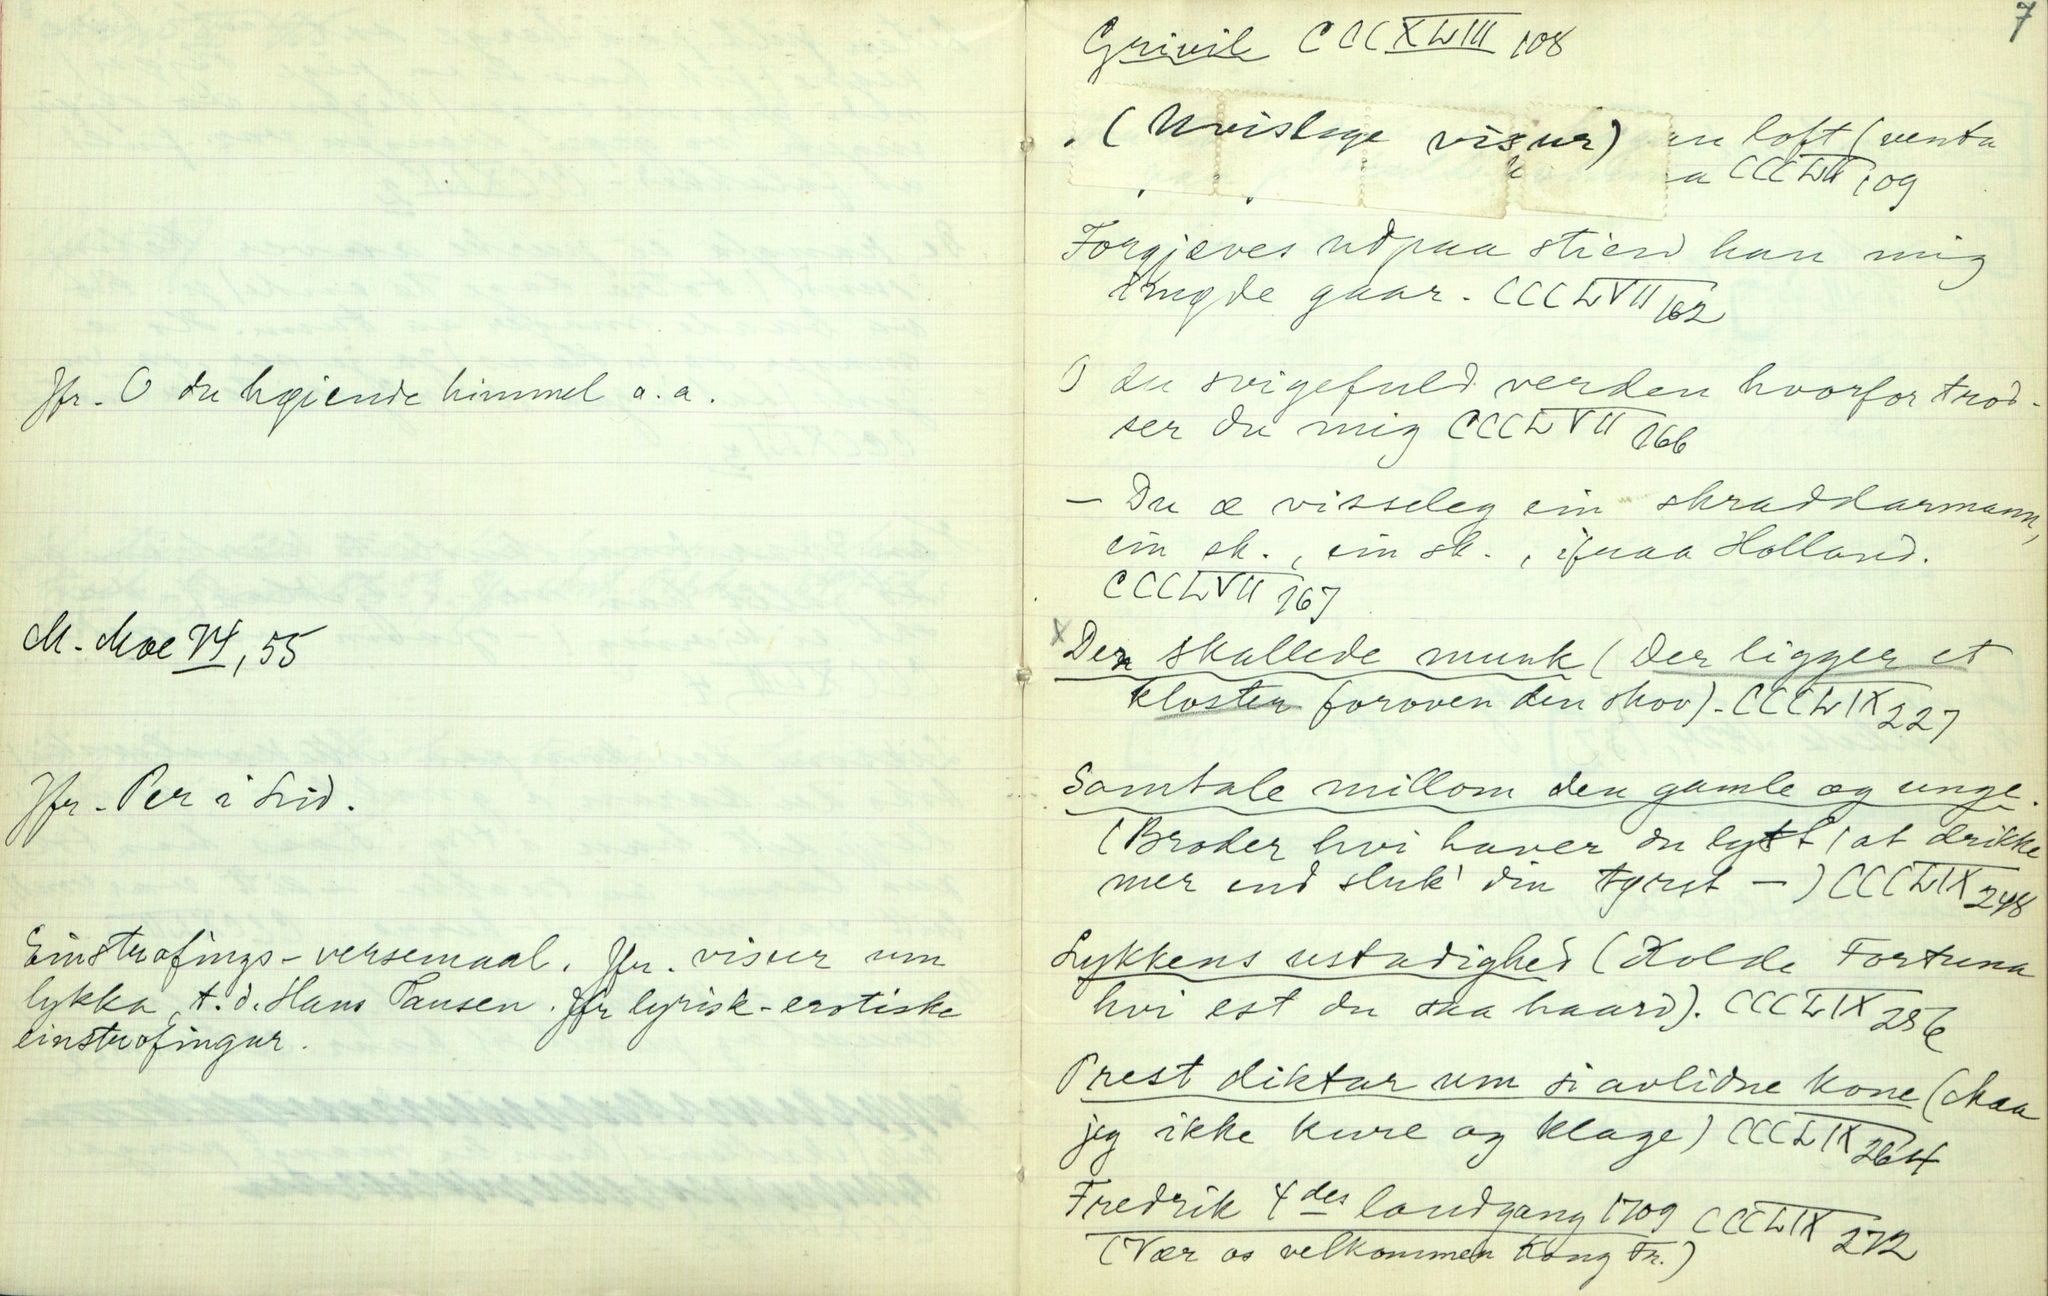 Jfr. O du høiende himmel o.a.
M. Moe VI, 55
Jfr. Per i Lid.
Einstrofings-versemaal. Jfr. visur um
lykka, t.d. Hans Pausen. Jfr lyrisk-erotiske
einstrofingar.
7
Grivil CCCXLVIII 108
(Uvislege visur) en loft (venta
a CCCLVII 109
Forgjæves udpaa stien han mig
gaar. CCCLVII 162
O du svigefuld verden hvorfor trod-
ser du mig CCCLVII 166
— Du æ visseleg ein skraddarmann,
ein sk., ein sk., ifraa Holland.
CCCLVII 167
x Den skallede munk (Der ligger et
kloster foroven den skov). CCCLIX 227
Samtale millom den gamle og unge.
(Broder hvi haver du lyst (at drikke
mer end sluk' din tyrst —) CCCLIX 248
Lykkens ustadighed (Kolde Fortuna
hvi est du saa haard). CCCLIX 256
Prest diktar um si avlidne kone (Maa
jeg ikke kure og klage) CCCLIX 264
Fredrik 4des landgang 1709 CCCLIX 272
(Vær os velkommen Kong Fr.)